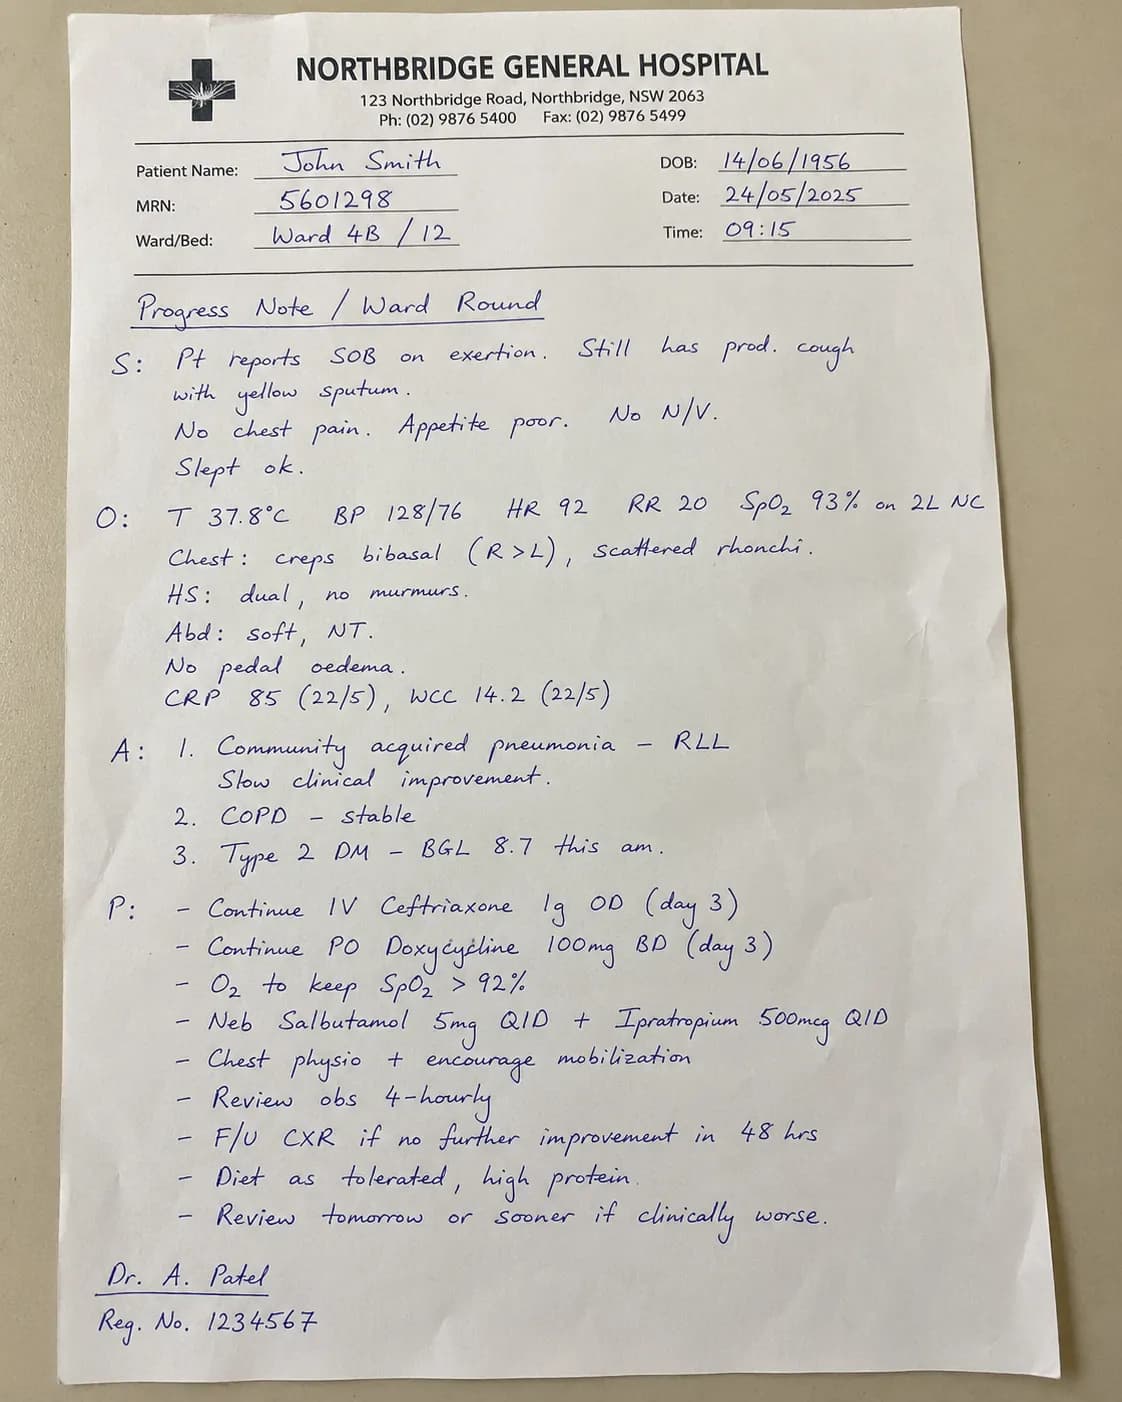 NORTHBRIDGE GENERAL HOSPITAL
123 Northbridge Road, Northbridge, NSW 2063
Ph: (02) 9876 5400 Fax: (02) 9876 5499
Patient Name: John Smith DOB: 14/06/1956
MRN: 5601298 Date: 24/05/2025
Ward/Bed: Ward 4B / 12 Time: 09:15
Progress Note / Ward Round
S: Pt reports SOB on exertion. Still has prod. cough
with yellow sputum.
No chest pain. Appetite poor. No N/V.
Slept ok.
O: T 37.8°C BP 128/76 HR 92 RR 20 SpO₂ 93% on 2L NC
Chest: creps bibasal (R>L), scattered rhonchi.
HS: dual, no murmurs.
Abd: soft, NT.
No pedal oedema.
CRP 85 (22/5), WCC 14.2 (22/5)
A: 1. Community acquired pneumonia - RLL
Slow clinical improvement.
2. COPD - stable
3. Type 2 DM - BGL 8.7 this am.
P: - Continue IV Ceftriaxone 1g OD (day 3)
- Continue PO Doxycycline 100mg BD (day 3)
- O₂ to keep SpO₂ > 92%
- Neb Salbutamol 5mg QID + Ipratropium 500mcg QID
- Chest physio + encourage mobilization
- Review obs 4-hourly
- F/U CXR if no further improvement in 48 hrs
- Diet as tolerated, high protein.
- Review tomorrow or sooner if clinically worse.
Dr. A. Patel
Reg. No. 1234567